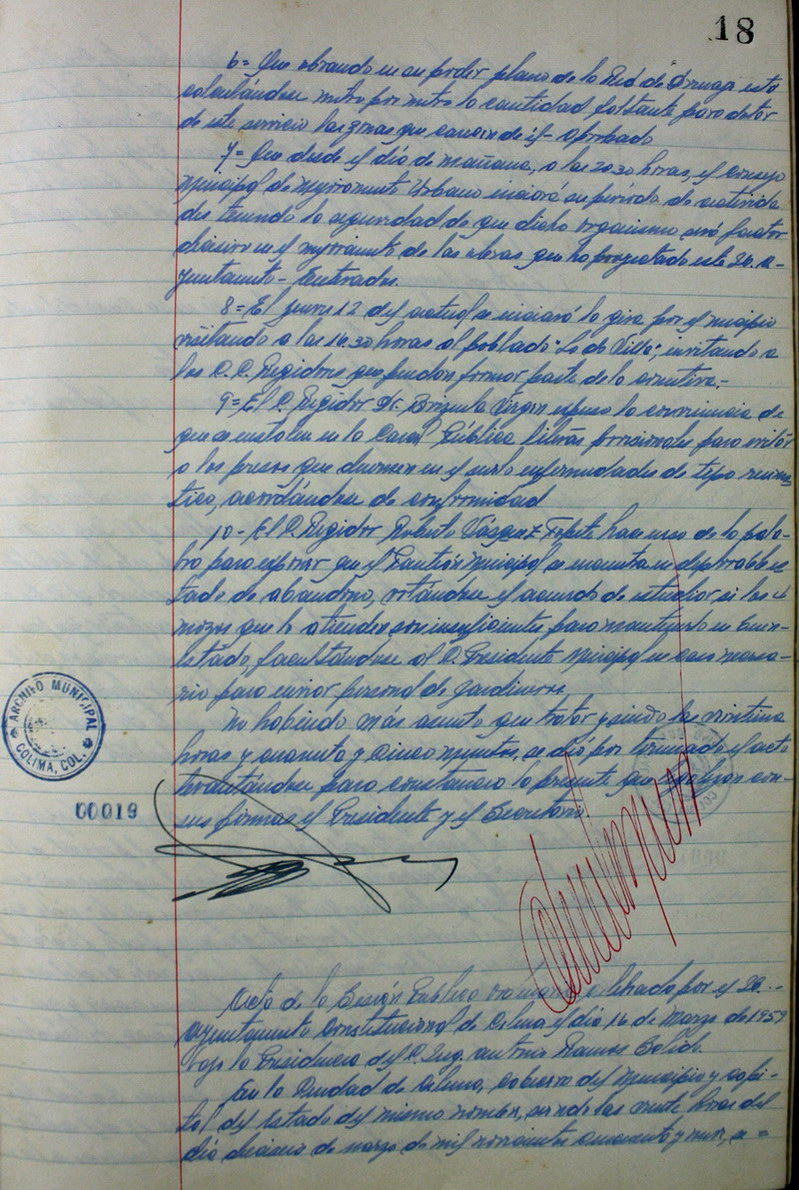 18
6= Que obrando en su poder plano de la Red de Drenaje está
calculándose metro por metro la cantidad faltante para dotar
de este servicio las zonas que carecen de él- aprobado
7= Que desde el día de mañana, a las 20.30 horas, el Consejo
Municipal de Mejoramiento Urbano iniciará su período de activida
des teniendo la seguridad de que dicho organismo será factor
decisivo en el mejoramiento de las obras que ha proyectado este H. A-
yuntamiento- Enterados.
8= El jueves 12 del actual se iniciará la gira por el municipio
visitando a las 16.30 horas al poblado "Lo de Villa", invitando a
los C.C. Regidores que puedan formar parte de la comitiva.-
9= El C. Regidor Dr. Brizuela Virgen expuso la conveniencia de
que se instalen en la Carcel Pública literas provisionales para evitar
a los presos que duermen en el suelo enfermedades de tipo reumá
tico, acordándose de conformidad
10- El C. Regidor Roberto Vásquez Topete hace uso de la pala-
bra para expresar que el Panteón Municipal se encuentra en deplorable es
tado de abandono, votándose el acuerdo de estudiar si los
mozos que lo atienden son insuficientes para mantenerlo en buen
estado, facultándose al C. Presidente Municipal en caso necesa-
rio para enviar personal de jardineros.
No habiendo más asunto que tratar y siendo las veintiuna
horas y cuarenta y cinco minutos, se dió por terminado el acto
levantándose para constancia la presente que con-
sus firmas el Presidente y el Secretario.
ARCHIVO MUNICIPAL
COLIMA, COL.
00019
Acta de la Sesión Pública celebrada por el H.
Ayuntamiento Constitucional de Colima el día 16 de Marzo de 1959
bajo la Presidencia del C. Ing. Antonio Ramos
En la Ciudad de Colima, Cabecera del Municipio y capi-
tal del Estado del mismo nombre, siendo las veinte horas del
día dieciseis de marzo de mil novecientos cincuenta y nueve, se